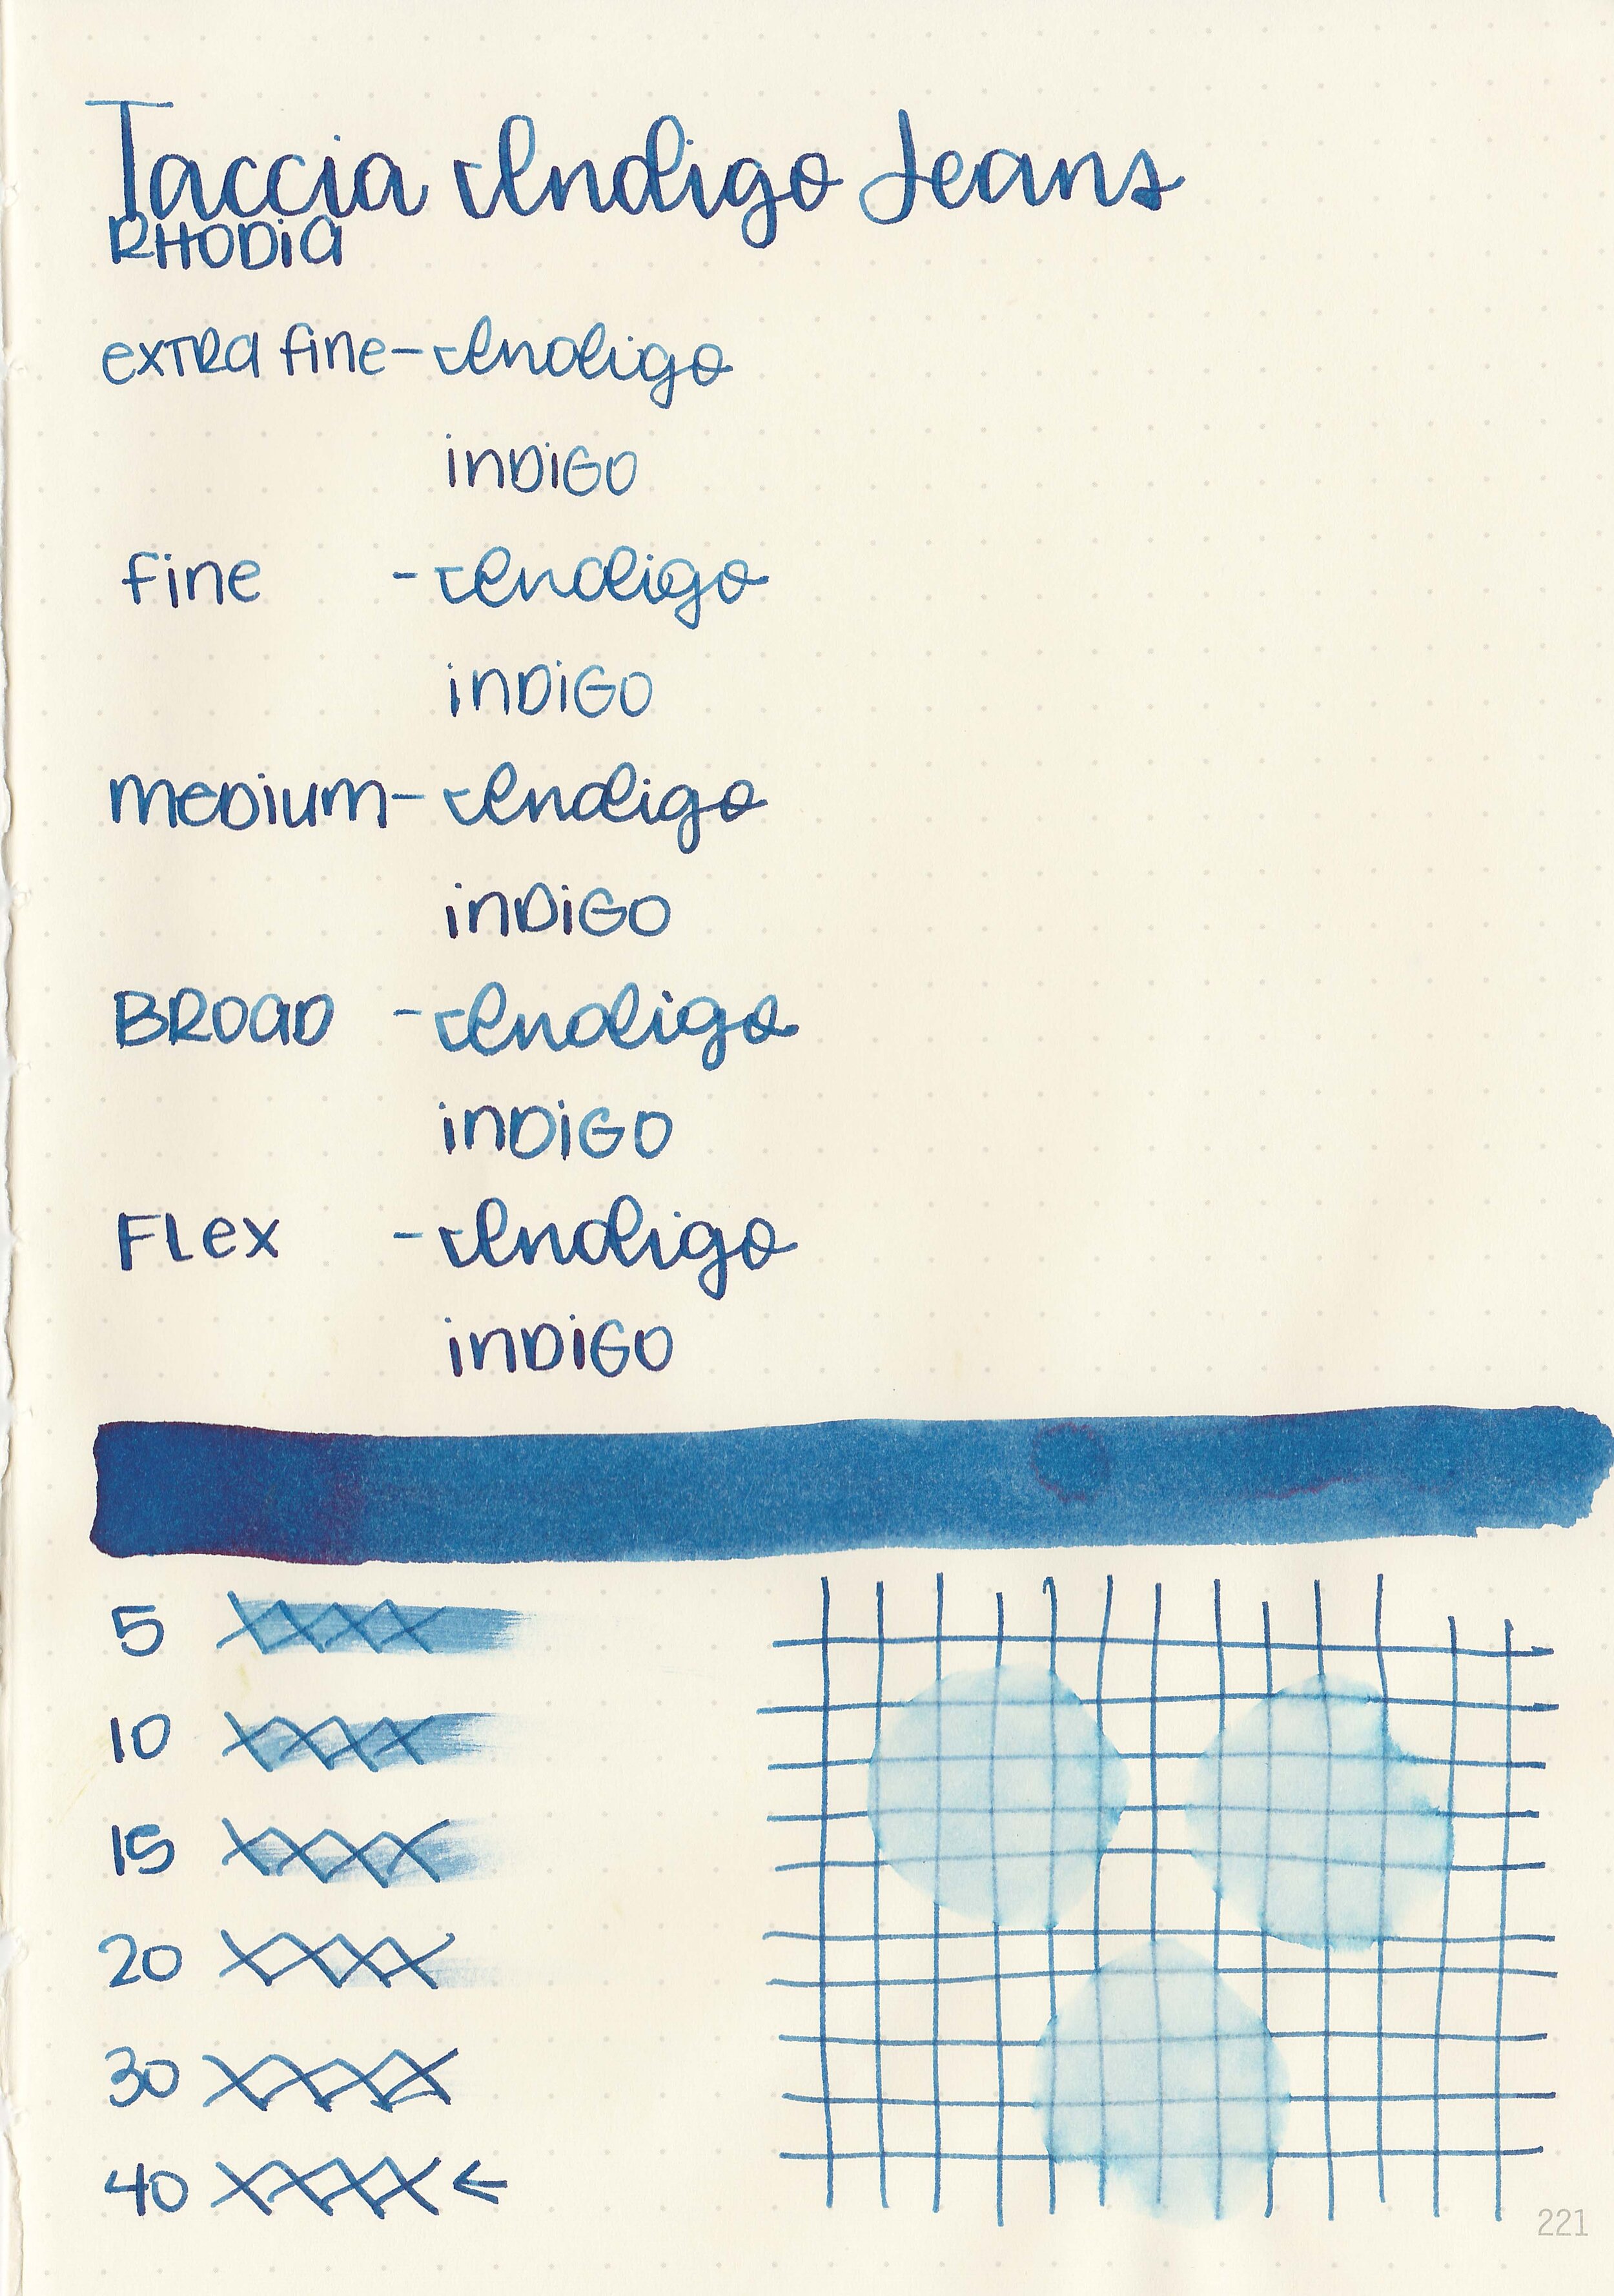 Taccia Indigo Jeans
RHODIA
extra fine - Indigo
INDIGO
fine - Indigo
INDIGO
medium - Indigo
INDIGO
BROAD - Indigo
INDIGO
Flex - Indigo
INDIGO
5 XXXX
10 XXXX
15 XXXX
20 XXXX
30 XXXX
40 XXXX ←
221